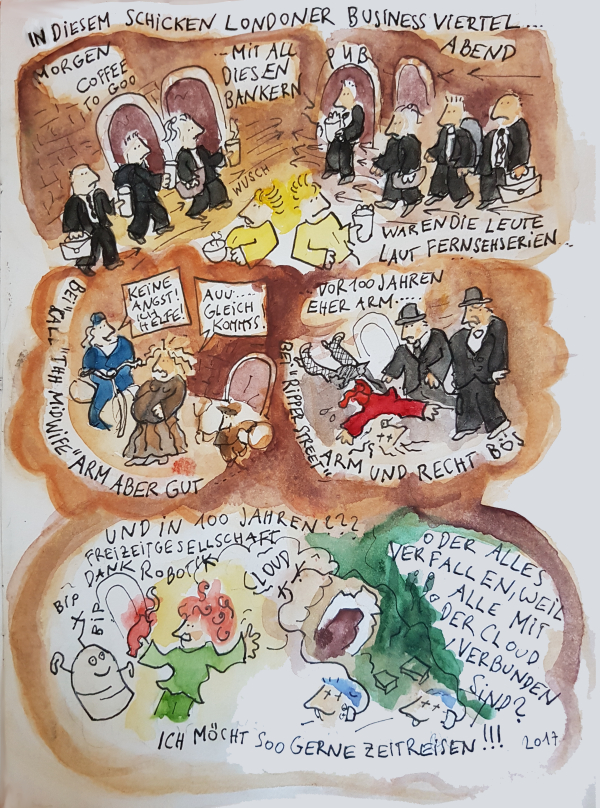 IN DIESEM SCHICKEN LONDONER BUSINESS VIERTEL...
MORGEN
COFFEE
TO GOO
...MIT ALL
DIESEN
BANKERN
PUB
ABEND
WUSCH
WAREN DIE LEUTE
LAUT FERNSEHSERIEN...
BEI "CALL THE MIDWIFE" ARM ABER GUT
KEINE
ANGST!
ICH
HELFE!
AUU....
GLEICH
KOMMTS.
...VOR 100 JAHREN
EHER ARM.....
BEI "RIPPER STREET"
ARM UND RECHT BÖS
UND IN 100 JAHREN ???
FREIZEITGESELLSCHAFT
DANK ROBOTIK
BIP
BIP
CLOUD
ODER ALLES
VERFALLEN, WEIL
ALLE MIT
DER CLOUD
VERBUNDEN
SIND?
ICH MÖCHT SOO GERNE ZEITREISEN!!!
2017